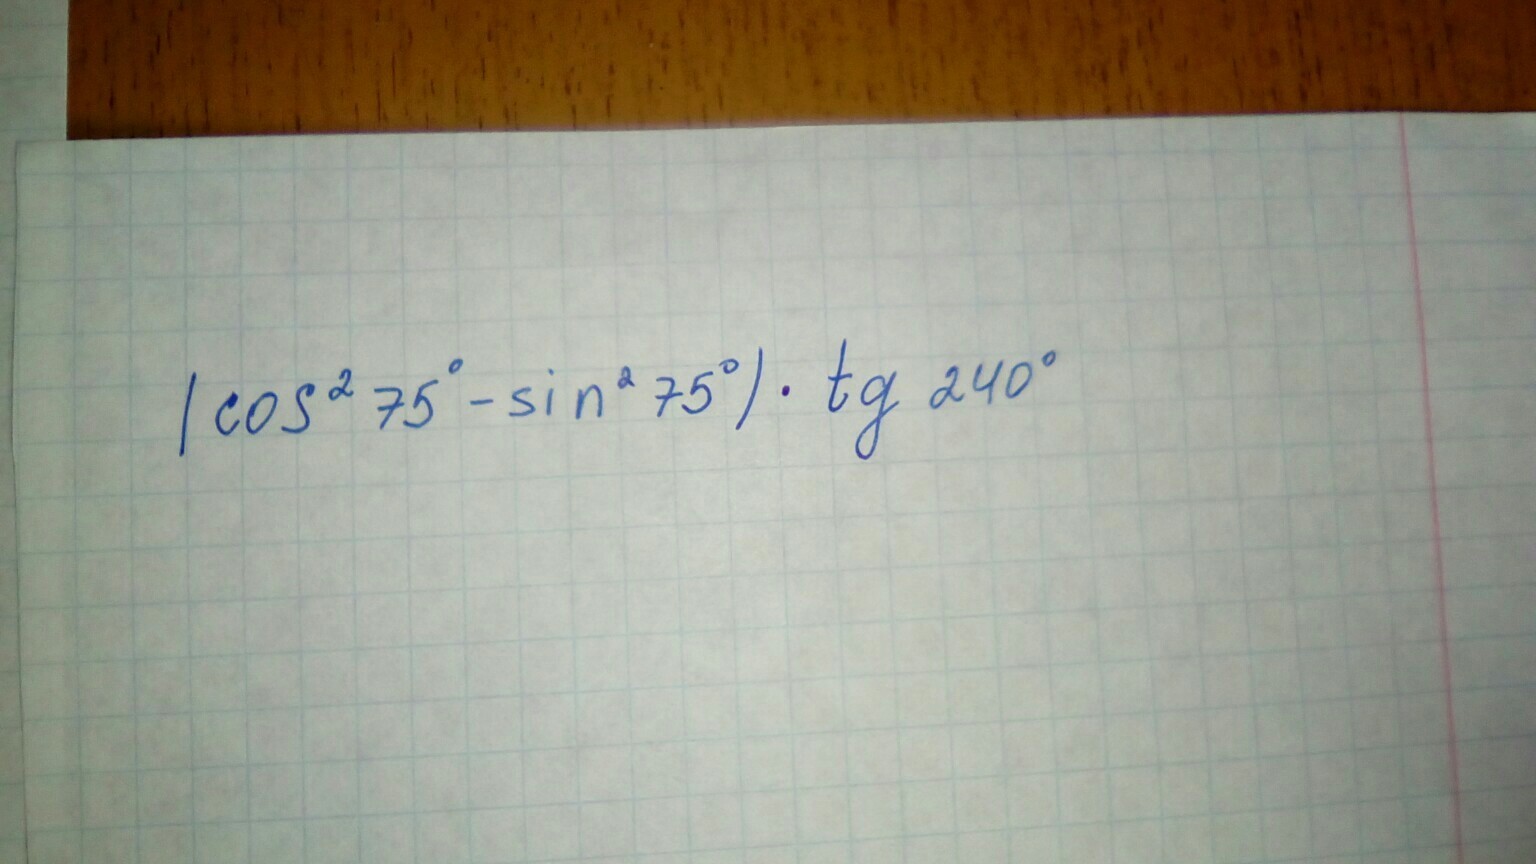 (cos² 75° - sin² 75°) · tg 240°